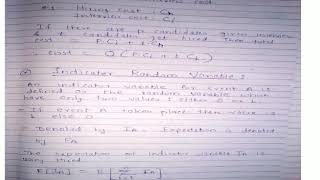 e.g. Hiring cost : Ch
Interview cost : Ci
If there are p candidates given interview
& t candidates get hired Then total
cost P.Ci + t Ch
: cost O(P.Ci + t Ch)
Indicator Random Variable :
An indicator variable for event A is
defined as the random variable which
have only two values 1 either 0 or
If event A takes place then value is
1, else 0
Denoted by IA. Expectation is denoted
by EA
The expectation of indicator variable IA is
E[IA] = E